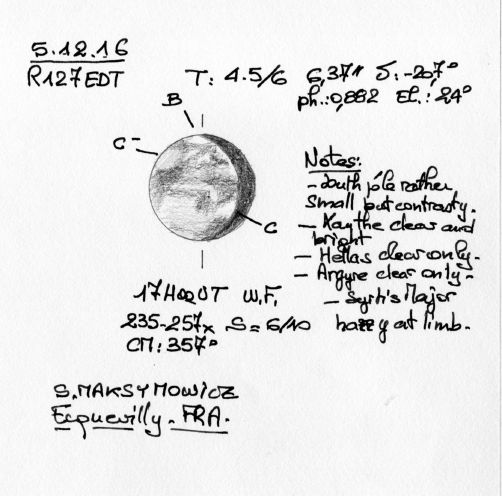 5.12.16
R127EDT
T: 4.5/6 6,37" S: -20,7°
ph.: 0,882 El.: 24°
B
C-
C
Notes:
- South pole rather
small but contrasty.
- Kaythe clear and
bright
- Hellas clear only -
- Argyre clear only -
- Syrtis Major
hazzy at limb.
17H00UT W.F.
235-257x S=6/10
CM: 357°
S. MAKSYMOWICZ
Ecquevilly. FRA.